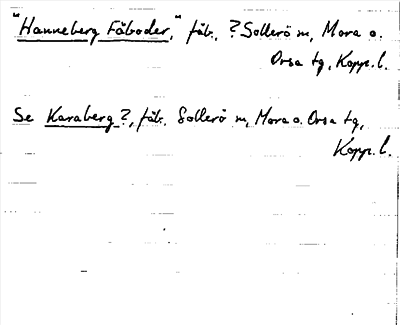 "Hanneberg Fäboder," fäb., ? Sollerö sn, Mora o.
Orsa tg, Kopp. l.
Se Karaberg ?, fäb. Sollerö sn, Mora o. Orsa tg,
Kopp. l.